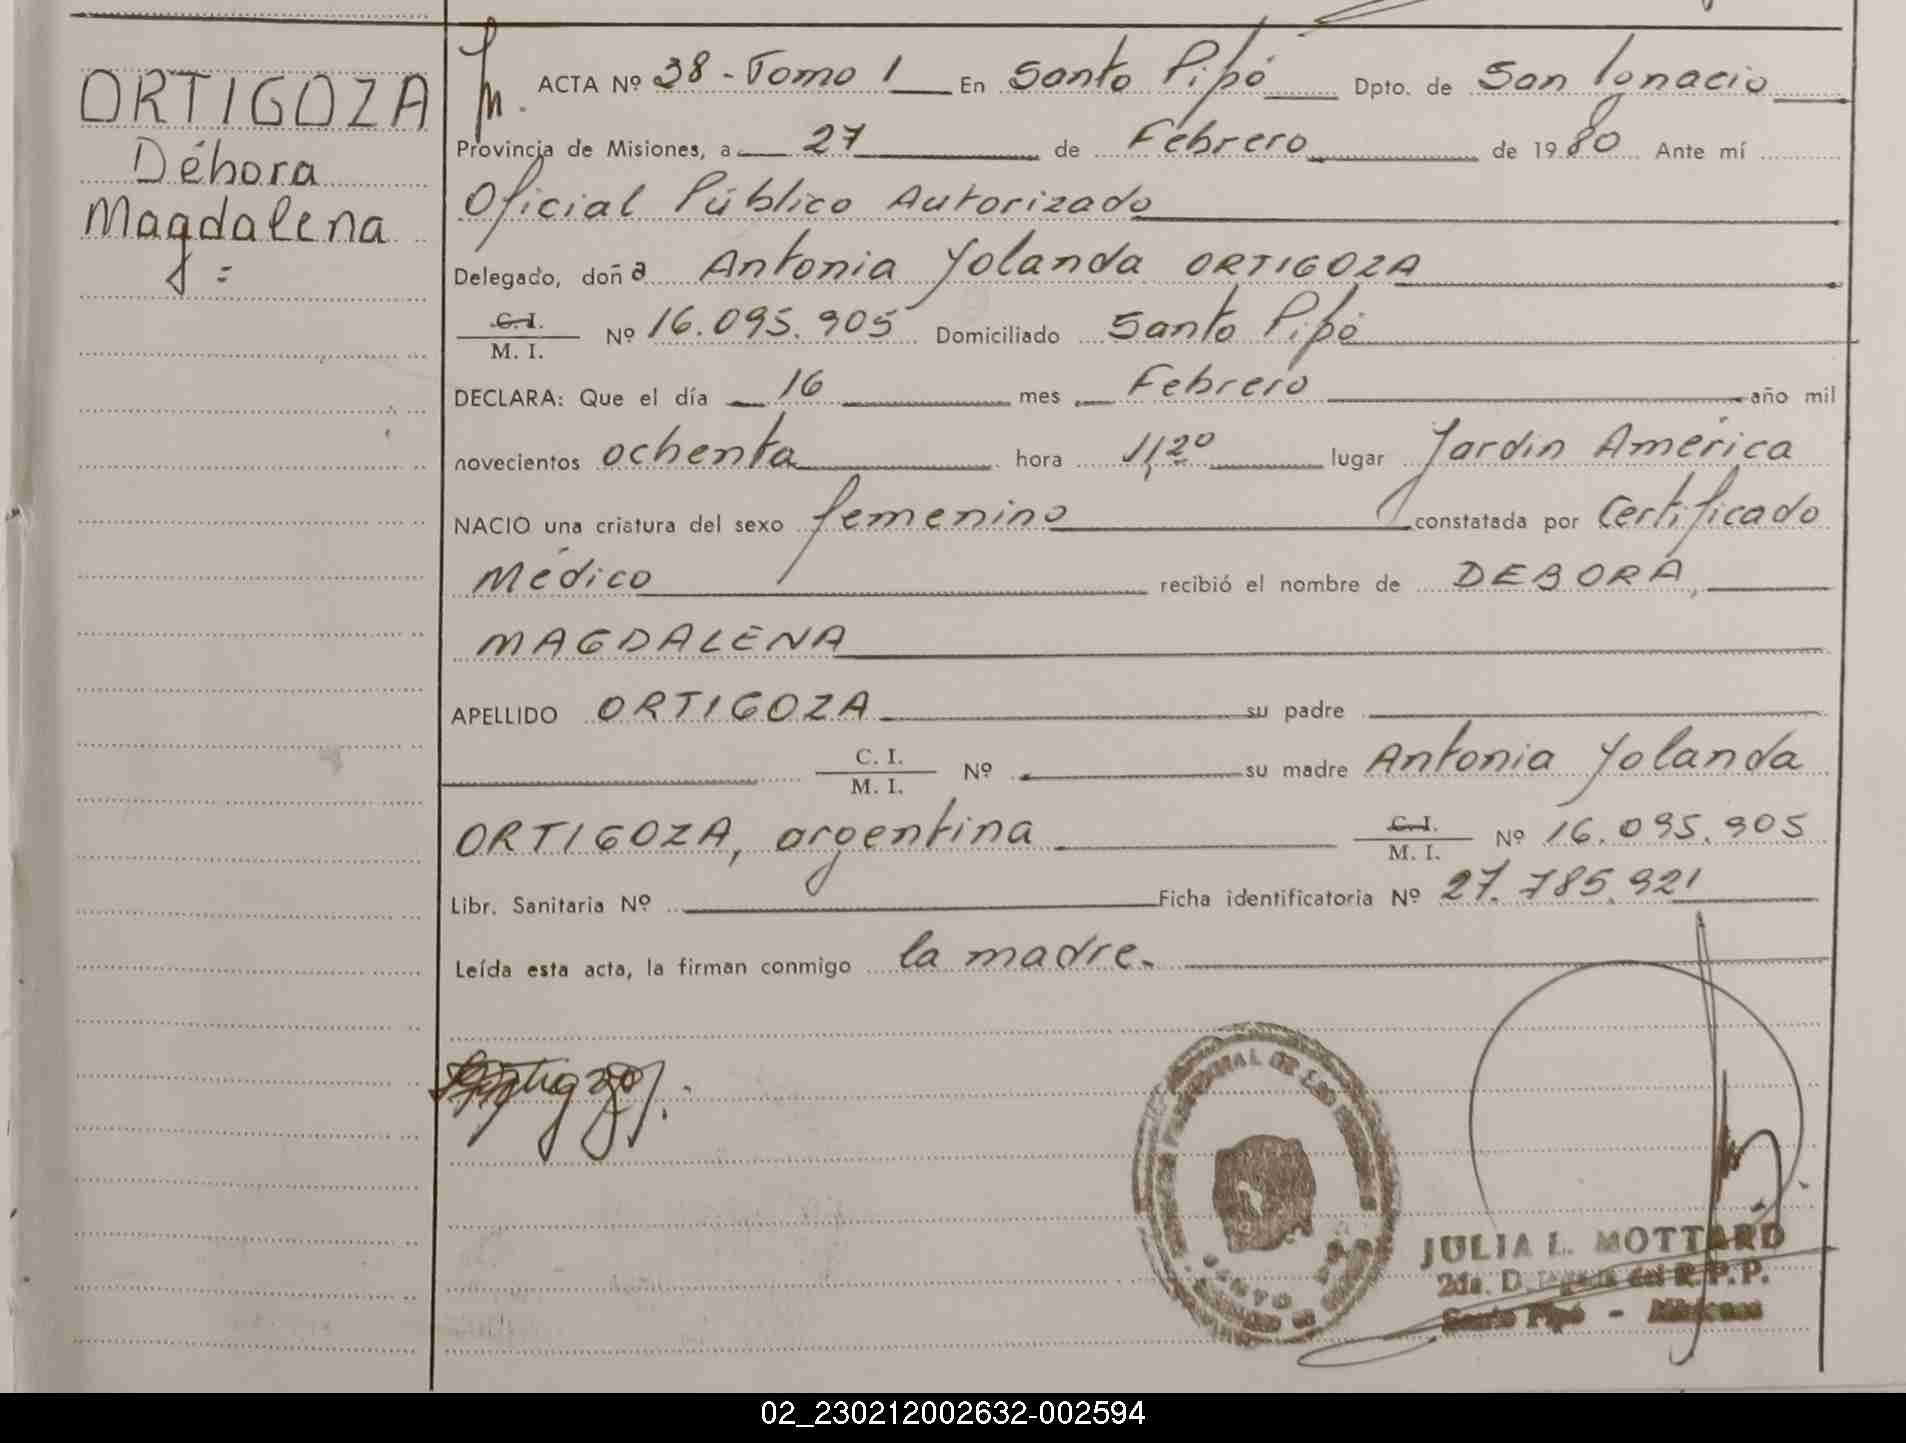 ORTIGOZA
Débora
Magdalena
ACTA Nº 38 - Tomo 1 En Santo Pipó Dpto. de San Ignacio
Provincia de Misiones, a 27 de Febrero de 1980 Ante mí
Oficial Público Autorizado
Delegado, doña Antonia Yolanda ORTIGOZA
C. I.
M. I. Nº 16.095.905 Domiciliado Santo Pipó
DECLARA: Que el día 16 mes Febrero año mil
novecientos ochenta hora 11,20 lugar Jardin América
NACIO una criatura del sexo femenino constatada por Certificado
Médico recibió el nombre de DEBORA,
MAGDALENA
APELLIDO ORTIGOZA su padre
C. I.
M. I. Nº su madre Antonia Yolanda
ORTIGOZA, argentina C. I.
M. I. Nº 16.095.905
Libr. Sanitaria Nº Ficha identificatoria Nº 27.785.921
Leída esta acta, la firman conmigo la madre.
JULIA L. MOTTARD
2da. Delegada del R.P.P.
Santo Pipó - Misiones
02_230212002632-002594